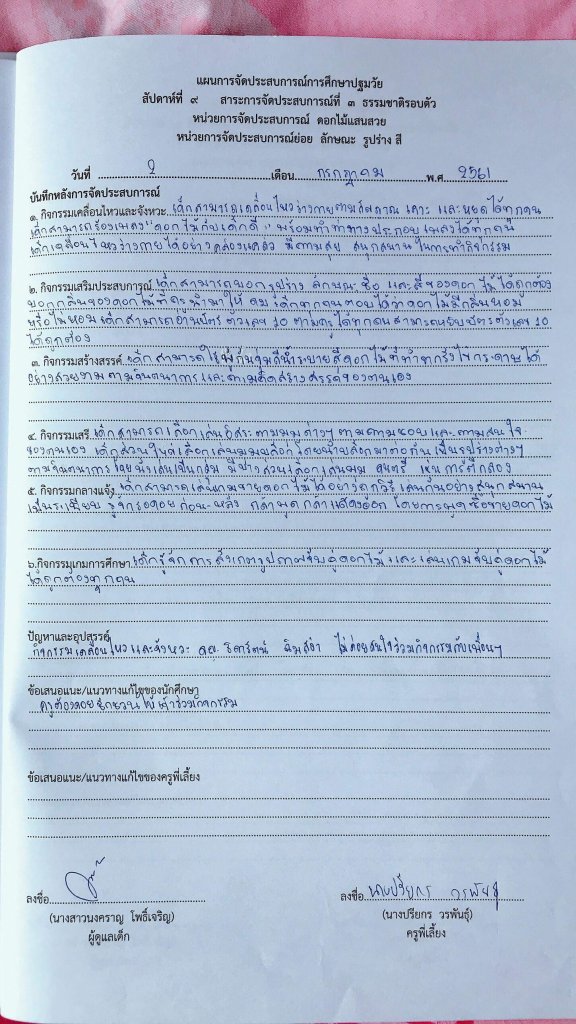 แผนการจัดประสบการณ์การศึกษาปฐมวัย
สัปดาห์ที่ ๙ สาระการจัดประสบการณ์ที่ ๓ ธรรมชาติรอบตัว
หน่วยการจัดประสบการณ์ ดอกไม้แสนสวย
หน่วยการจัดประสบการณ์ย่อย ลักษณะ รูปร่าง สี
วันที่ 2 เดือน กรกฎาคม พ.ศ. 2561
บันทึกหลังการจัดประสบการณ์
๑. กิจกรรมเคลื่อนไหวและจังหวะ เด็กสามารถเคลื่อนไหวร่างกายตามสัญญาณ เคาะ และหยุดได้ทุกคน
เด็กสามารถร้องเพลง "ดอกไม้กับเด็กดี" พร้อมทำท่าทางประกอบเพลงได้ทุกคน
เด็กเคลื่อนไหวร่างกายได้อย่างคล่องแคล่ว มีความสุข สนุกสนาน ในการทำกิจกรรม
๒. กิจกรรมเสริมประสบการณ์ เด็กสามารถบอกรูปร่าง ลักษณะ ชื่อ และสีของดอกไม้ได้ถูกต้อง
บอกกลิ่นของดอกไม้ที่ครูนำมาให้ดม เด็กทุกคนตอบได้ว่าดอกไม้มีกลิ่นหอม
หรือไม่หอม เด็กสามารถอ่านบัตรตัวเลข 10 ตามครูได้ทุกคน สามารถหยิบบัตรตัวเลข 10
ได้ถูกต้อง
๓. กิจกรรมสร้างสรรค์ เด็กสามารถใช้พู่กันจุ่มสีน้ำระบายสีดอกไม้ที่ทำจากกระดาษได้
อย่างสวยงามตามจินตนาการและความคิดสร้างสรรค์ของตนเอง
๔. กิจกรรมเสรี เด็กสามารถเลือกเล่นอิสระตามมุมต่างๆ ตามความชอบและความสนใจ
ของตนเอง เด็กส่วนใหญ่เลือกเล่นมุมบล็อก โดยนำบล็อกมาต่อกันเป็นรูปร่างต่างๆ
ตามจินตนาการ โดยนั่งเล่นเป็นกลุ่ม มีบางส่วนเลือกเล่นมุม ดนตรี เช่น การตีกลอง
๕. กิจกรรมกลางแจ้ง เด็กสามารถเล่นเกมขายดอกไม้ได้อย่างถูกวิธี เล่นกันอย่างสนุกสนาน
เป็นระเบียบ รู้จักรอคอย ก่อน-หลัง กล้าพูด กล้าแสดงออก โดยการพูดซื้อขายดอกไม้
๖.กิจกรรมเกมการศึกษา เด็กรู้จักการสังเกตรูปภาพจับคู่ดอกไม้ และเล่นเกมจับคู่ดอกไม้
ได้ถูกต้องทุกคน
ปัญหาและอุปสรรค์
กิจกรรมเคลื่อนไหวและจังหวะ ไม่ค่อยสนใจร่วมกิจกรรมกับเพื่อนๆ
ข้อเสนอแนะ/แนวทางแก้ไขของนักศึกษา
ครูต้องคอยชักชวนให้เข้าร่วมกิจกรรม
ข้อเสนอแนะ/แนวทางแก้ไขของครูพี่เลี้ยง
ลงชื่อ
(นางสาวนงคราญ โพธิ์เจริญ)
ผู้ดูแลเด็ก
ลงชื่อ นางปรียกร วรพันธุ์
(นางปรียกร วรพันธุ์)
ครูพี่เลี้ยง